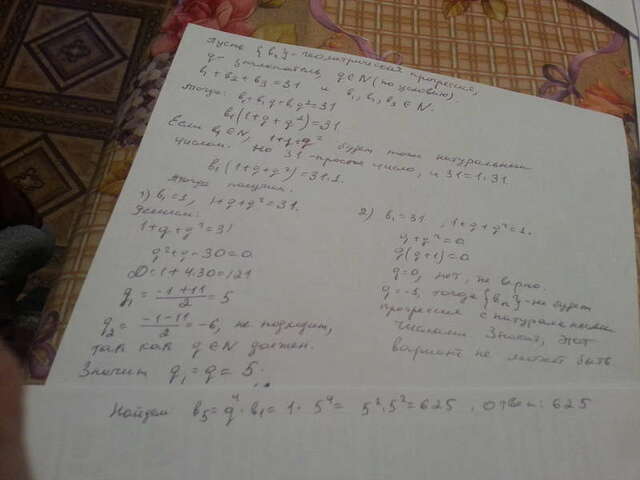 Пусть {bₙ} - геометрическая прогрессия,
q - знаменатель, q∈N (по условию).
b₁+b₂+b₃=31 и b₁, b₂, b₃ ∈ N.
Тогда: b₁+b₁q+b₁q²=31
b₁(1+q+q²)=31.
Если b₁∈N, 1+q+q² будет тоже натуральным
числом. Но 31-простое число, и 31=1·31.
b₁(1+q+q²)=31·1.
Тогда получим.
1) b₁=1, 1+q+q²=31.
Решаем:
1+q+q²=31
q²+q-30=0
D=1+4·30=121
q₁= (-1+11)/2 = 5
q₂= (-1-11)/2 = -6, не подходит,
так как q∈N должен.
Значит q₁=q=5.
2) b₁=31, 1+q+q²=1.
q+q²=0
q(q+1)=0
q=0, нет, не верно.
q=-1, тогда {bₙ}-не будет
прогрессия с натуральными
числами. Значит, этот
вариант не может быть.
Найдем b₅=q⁴·b₁=1·5⁴=5²·5²=625, Ответ: 625